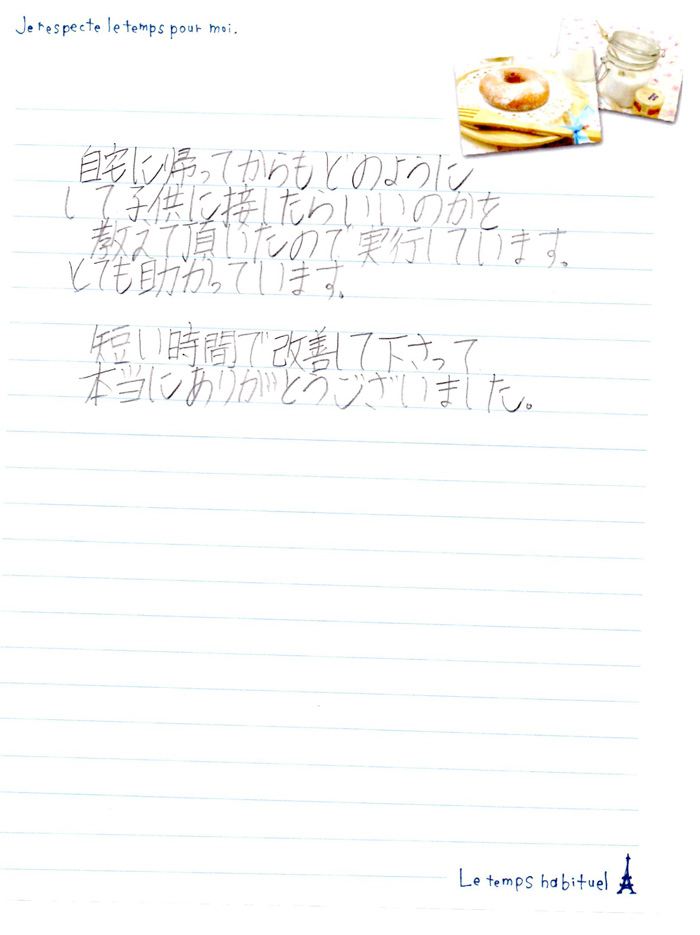 Je respecte le temps pour moi.
自宅に帰ってからもどのように
して子供に接したらいいのかを
教えて頂いたので実行しています。
とても助かっています。
短い時間で改善して下さって
本当にありがとうございました。
Le temps habituel